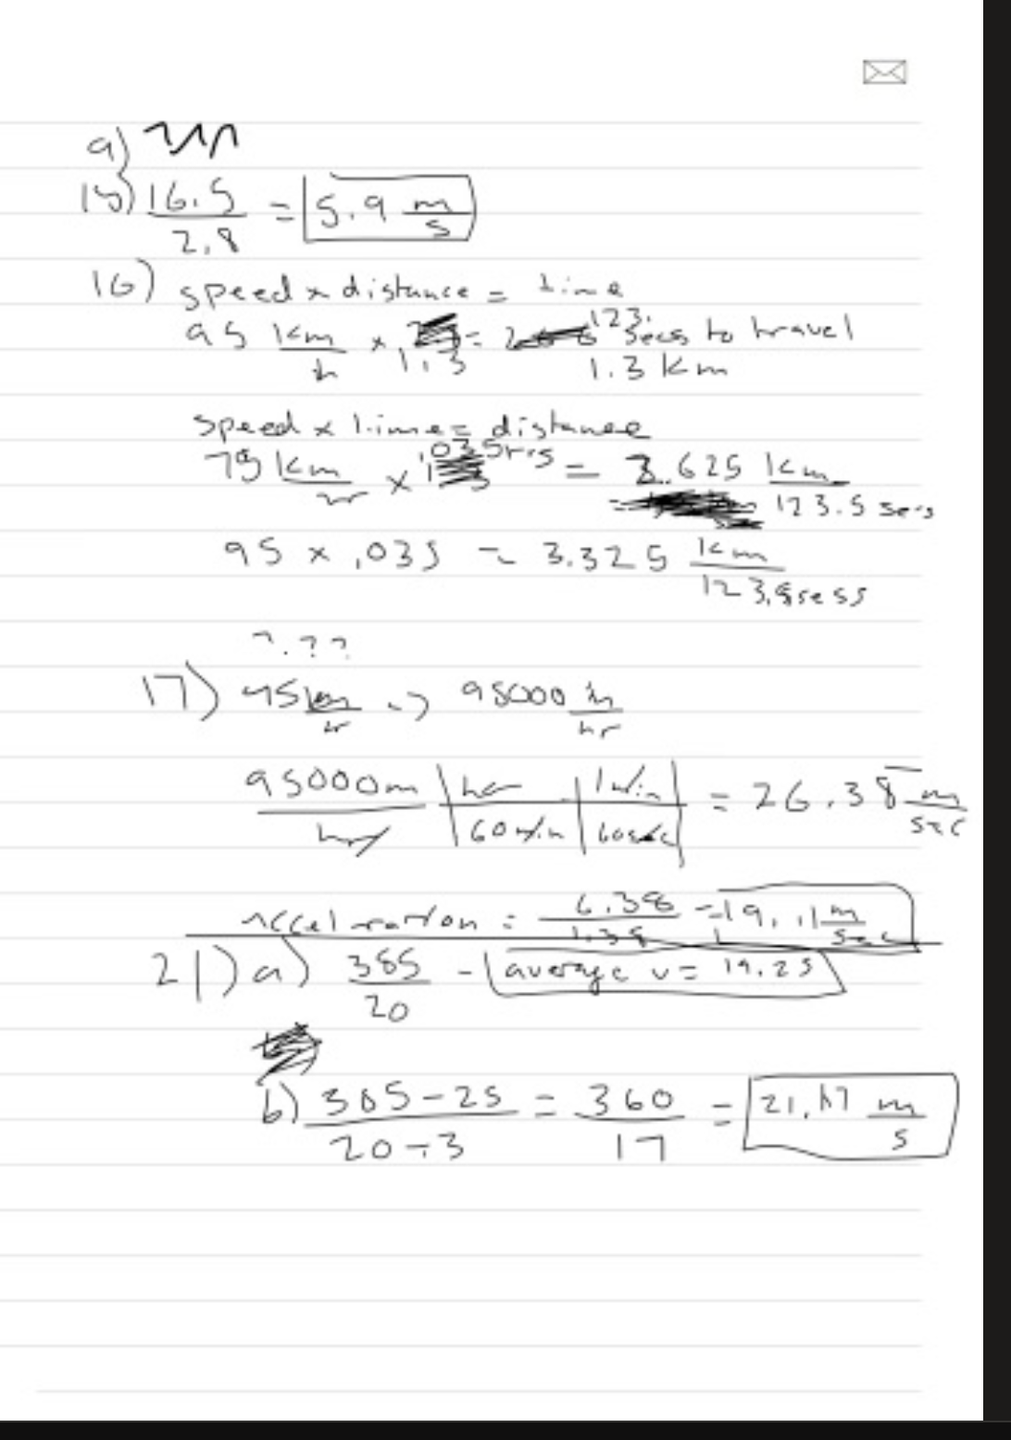 a)
15) 16.5 / 2.8 = 5.9 m/s
16) speed x distance = time
95 km/h x 1.3 = 123. secs to travel
1.3 km
speed x time = distance
75 km/hr x .035 hrs = 2.625 km / 123.5 secs
95 x .035 = 3.325 km / 123.5 secs
?.??
17) 95 km/hr -> 95000 m/hr
95000m / hr | hr / 60 min | 1 min / 60 sec = 26.38 m/sec
acceleration = 6.38 / 1.38 = 19.11 m/sec
21) a) 385 / 20 - average v = 19.25
b) 385-25 / 20-3 = 360 / 17 = 21.17 m/s